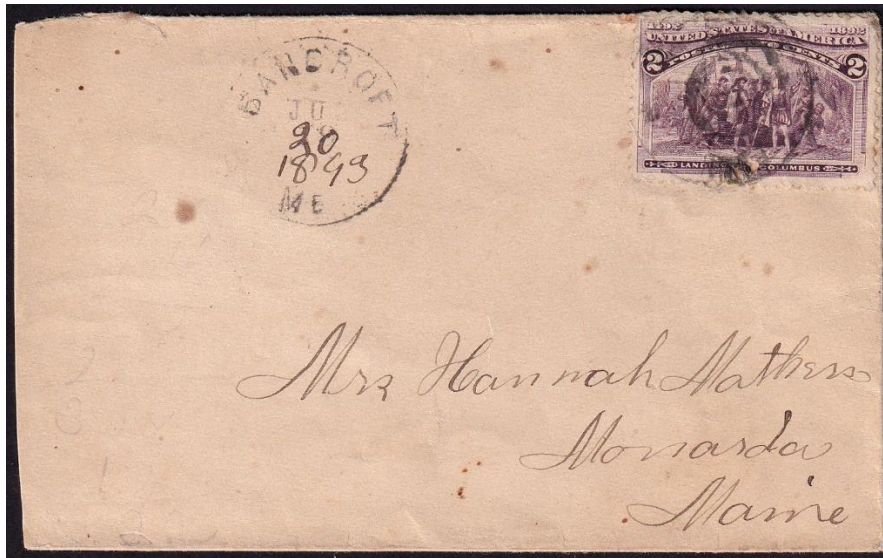 BANCROFT
JU
20
1893
ME
1492 UNITED STATES OF AMERICA 1892
2 2
LANDING COLUMBUS
Mrs Hannah Mathers
Monarda
Maine